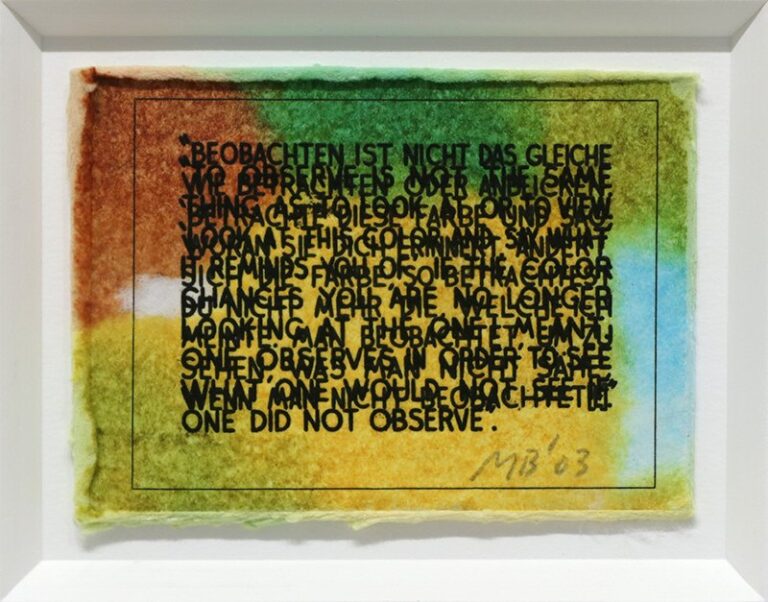 "BEOBACHTEN IST NICHT DAS GLEICHE
"TO OBSERVE IS NOT THE SAME
WIE BETRACHTEN ODER ANBLICKEN.
THING AS TO LOOK AT OR TO VIEW.
'BETRACHTE DIESE FARBE UND
'LOOK AT THIS COLOR AND SAY WHAT
WORAN SIE DICH ERINNERT'. ÄNDERT
IT REMINDS YOU OF'. IF THE COLOR
SICH DIE FARBE, SO BETRACHTEST
CHANGES YOU ARE NO LONGER
DU NICHT MEHR DIE, WELCHE ICH
LOOKING AT THE ONE I MEANT.
MEINTE. MAN BEOBACHTET, UM ZU
ONE OBSERVES IN ORDER TO SEE
SEHEN, WAS MAN NICHT SÄHE,
WHAT ONE WOULD NOT SEE IF
WENN MAN NICHT BEOBACHTET".
ONE DID NOT OBSERVE".
MB'03